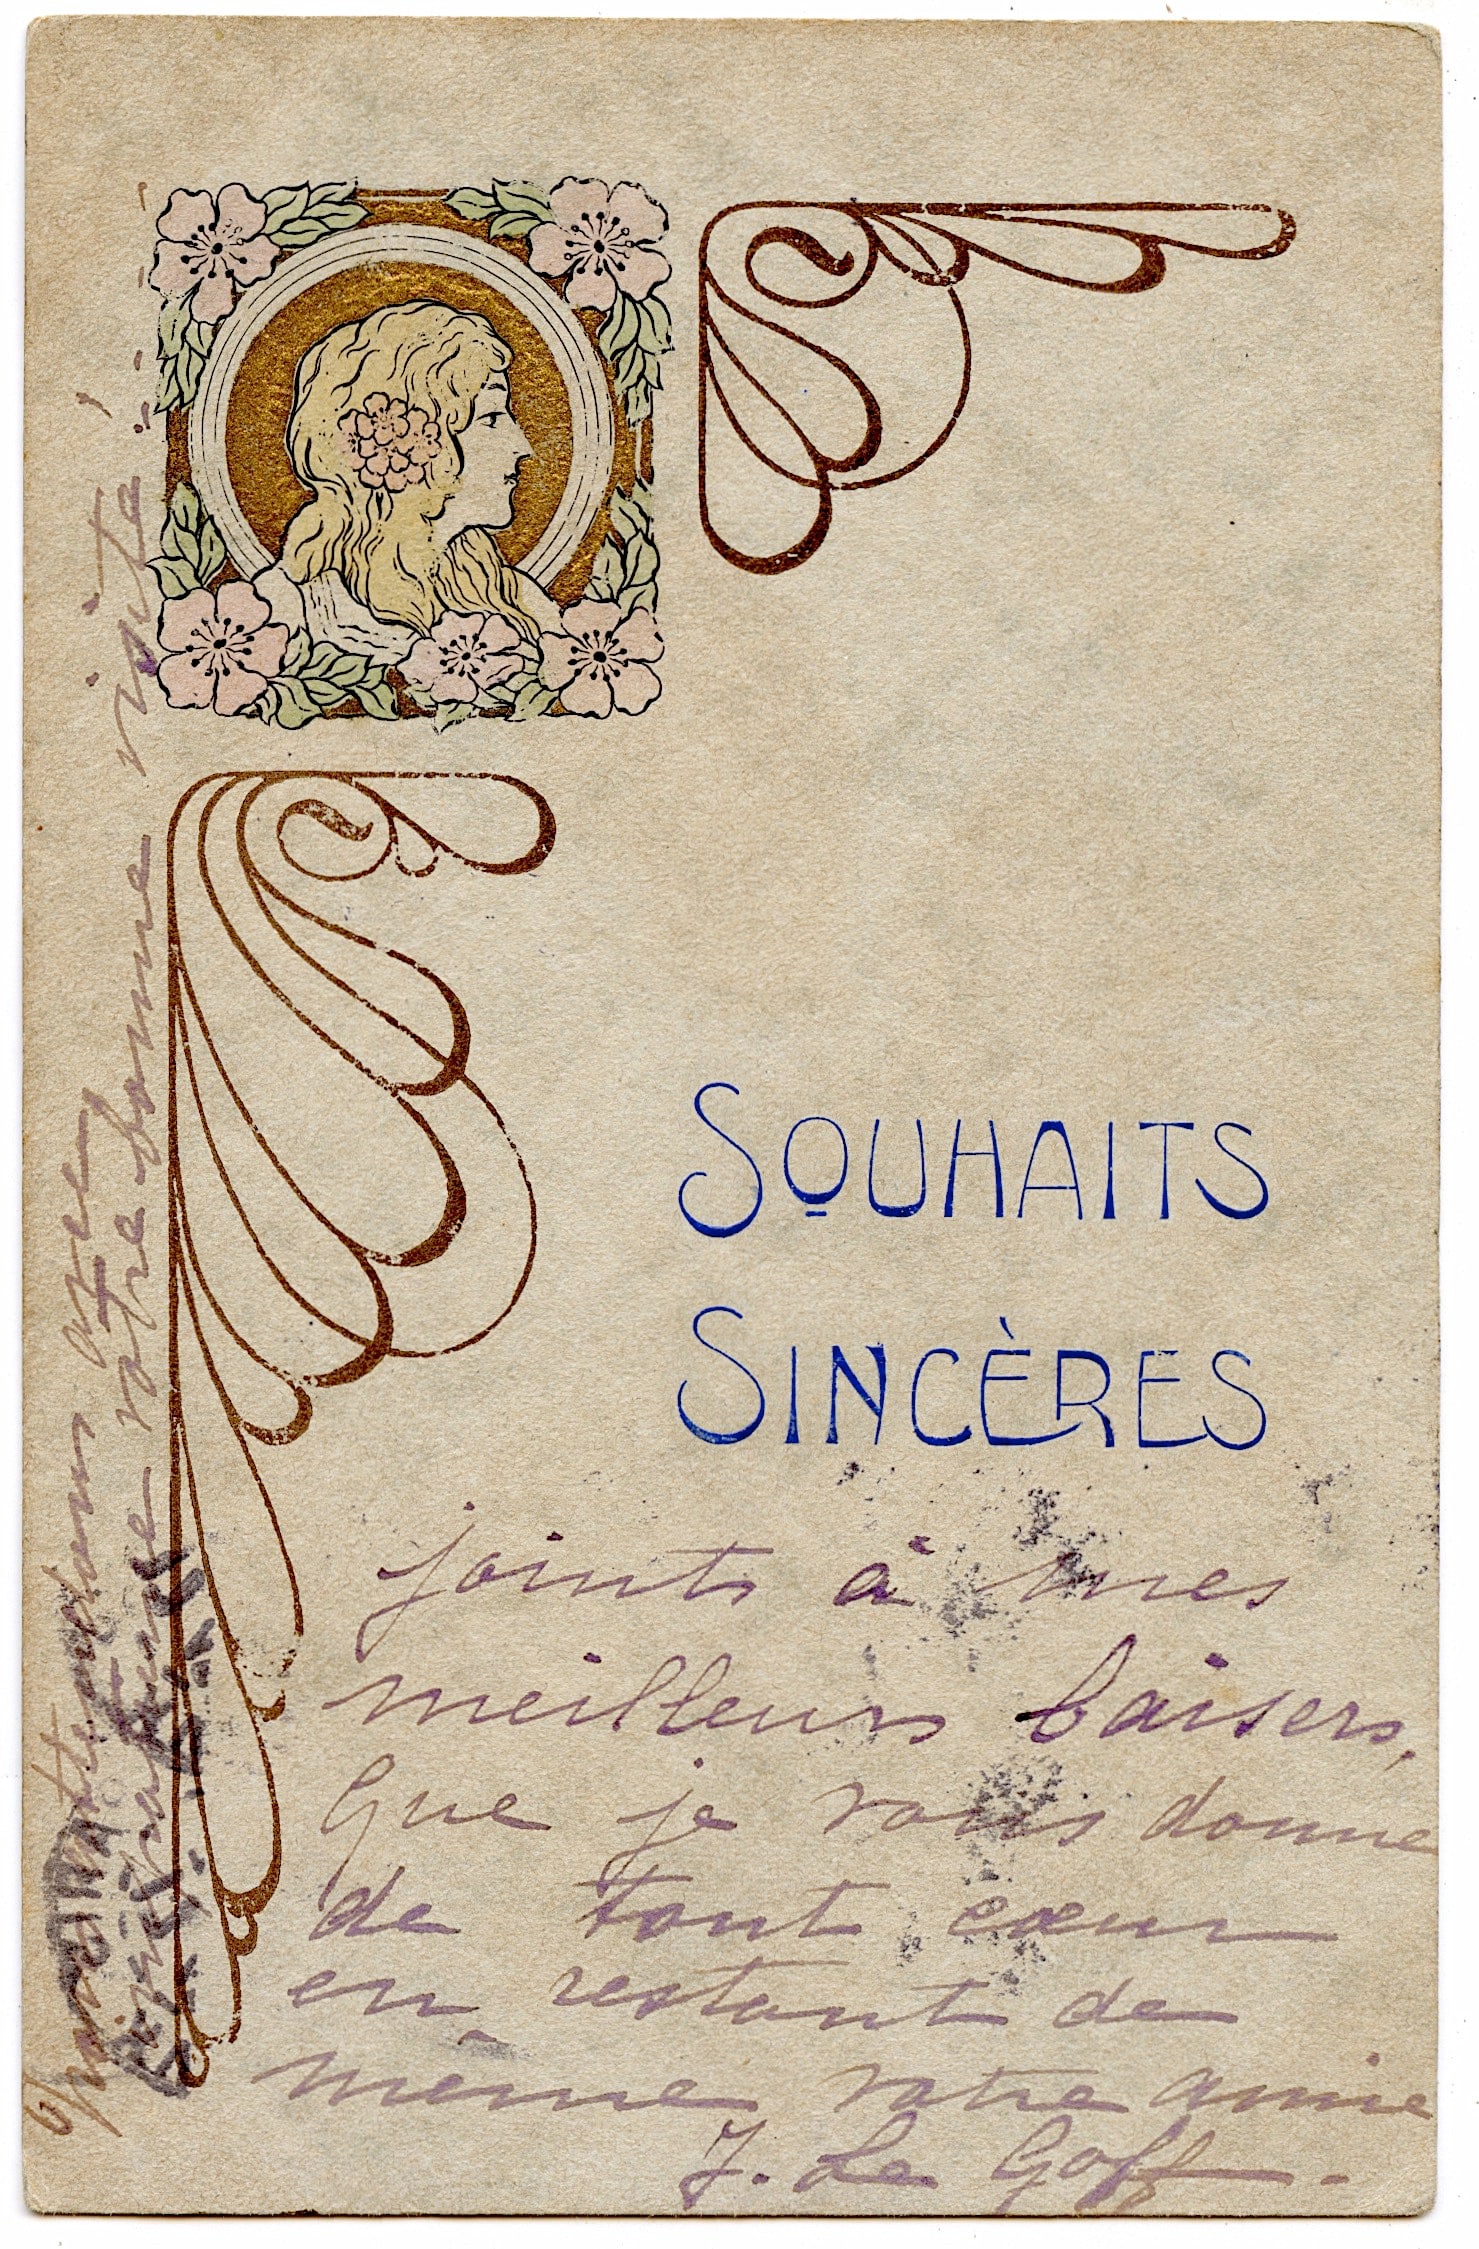 SOUHAITS
SINCÈRES
joints à mes
meilleurs baisers,
Que je vous donne
de tout cœur
en restant de
même votre amie
J. Le Goff.
attendons avec
votre bonne visite